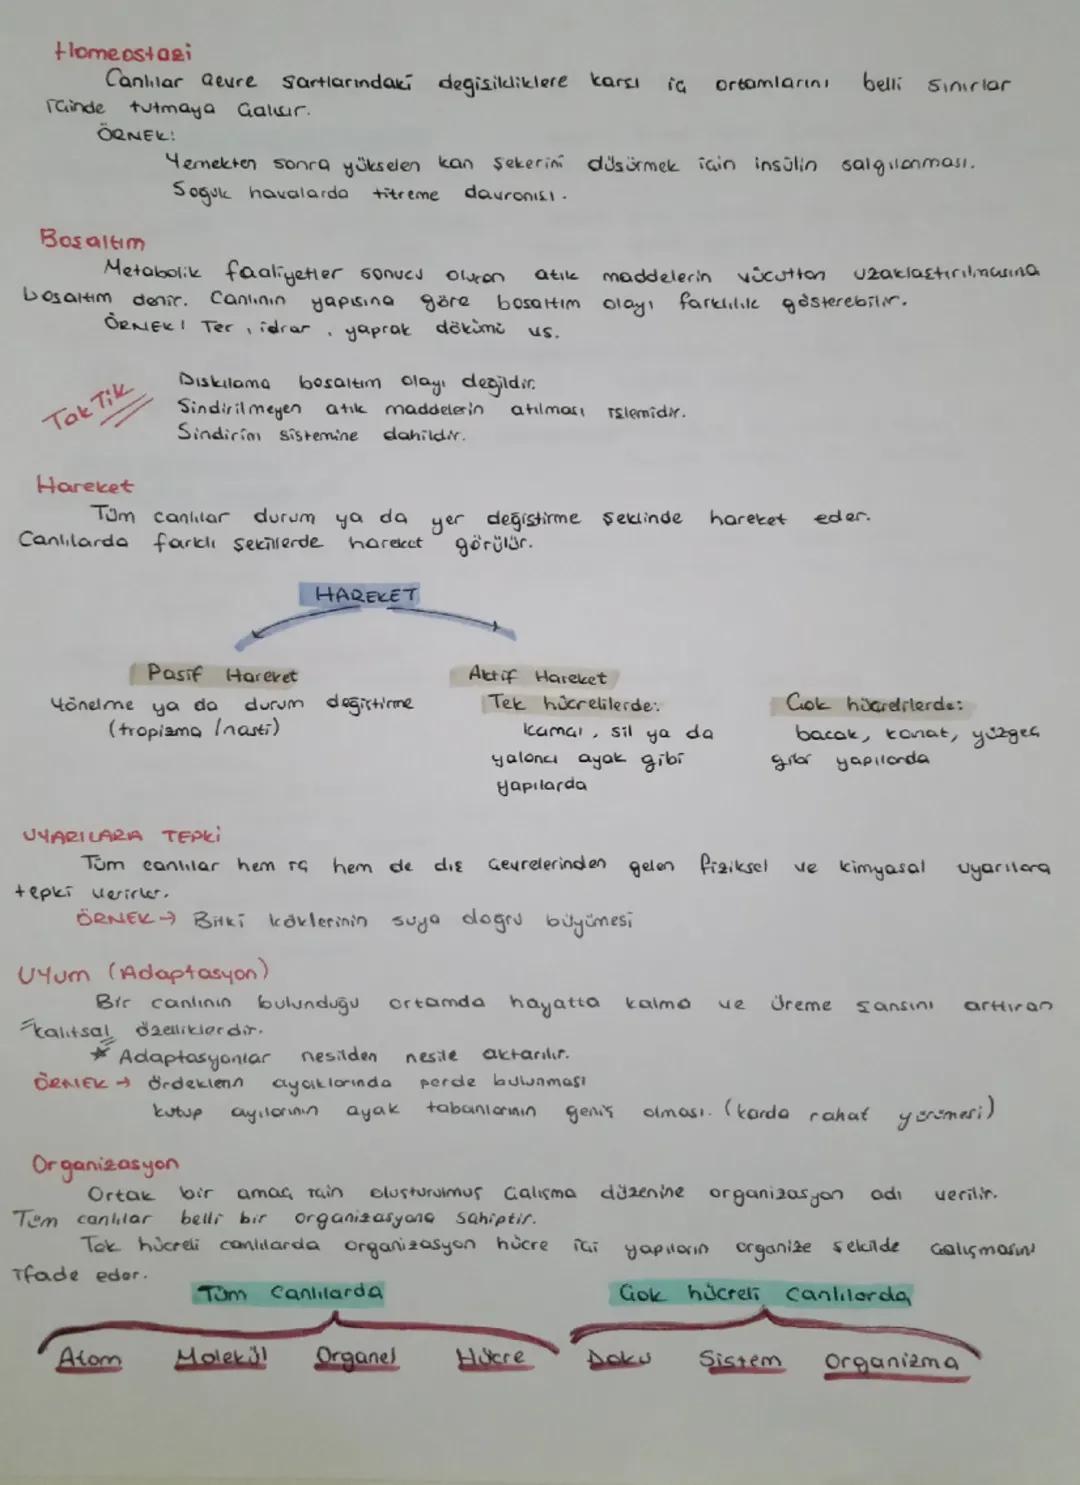 Homeostazi
Canlılar çevre şartlarındaki değişikliklere karşı iç ortamlarını belli sınırlar
içinde tutmaya çalışır.
ÖRNEK:
Yemekten sonra yükselen kan şekerini düşürmek için insülin salgılanması.
Soğuk havalarda titreme davranışı.
Boşaltım
Metabolik faaliyetler sonucu oluşan atık maddelerin vücuttan uzaklaştırılmasına
boşaltım denir. Canlının yapısına göre boşaltım olayı farklılık gösterebilir.
ÖRNEK! Ter, idrar, yaprak dökümü vs.
TakTik
Dışkılama boşaltım olayı değildir.
Sindirilmeyen atık maddelerin atılması işlemidir.
Sindirim sistemine dahildir.
Hareket
Tüm canlılar durum ya da yer değiştirme şeklinde hareket eder.
Canlılarda farklı şekillerde hareket görülür.
HAREKET
Pasif Hareket
Yönelme ya da durum değiştirme
(tropizma / nasti)
Aktif Hareket
Tek hücrelilerde:
Kamçı, sil ya da
yalancı ayak gibi
yapılarda
Çok hücrelilerde:
bacak, kanat, yüzgeç
gibi yapılarda
UYARILARA TEPKİ
Tüm canlılar hem iç hem de dış çevrelerinden gelen fiziksel ve kimyasal uyarılara
tepki verirler.
ÖRNEK → Bitki köklerinin suya doğru büyümesi
UYum (Adaptasyon)
Bir canlının bulunduğu ortamda hayatta kalma ve üreme şansını arttıran
kalıtsal özelliklerdir.
* Adaptasyonlar nesilden nesile aktarılır.
ÖRNEK → Ördeklerin ayaklarında perde bulunması
kutup ayılarının ayak tabanlarının geniş olması. (karda rahat yürümesi)
Organizasyon
Ortak bir amaç için oluşturulmuş çalışma düzenine organizasyon adı verilir.
Tüm canlılar belli bir organizasyona sahiptir.
Tek hücreli canlılarda organizasyon hücre içi yapıların organize şekilde çalışmasını
ifade eder.
Tüm Canlılarda
Çok hücreli Canlılarda
Atom Molekül Organel Hücre Doku Sistem Organizma